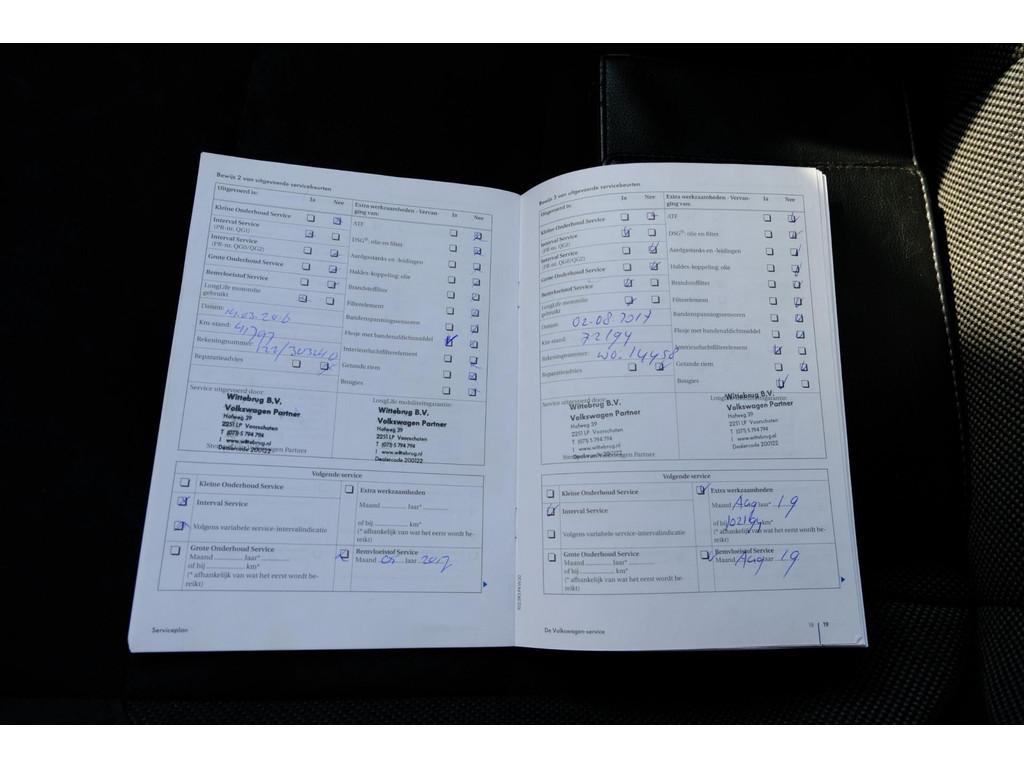 Bewijs 2 van uitgevoerde servicebeurten
Uitgevoerd is: Ja Nee
Kleine Onderhoud Service
Interval Service
(PR-nr. QG1)
Interval Service
(PR-nr. QG0/QG2)
Grote Onderhoud Service
Remvloeistof Service
LongLife motorolie
gebruikt
Datum: 14.03.2016
Km-stand: 41797
Rekeningnummer:
Reparatieadvies
Extra werkzaamheden - Vervan-
ging van: Ja Nee
ATF
DSG®: olie en filter
Aardgastanks en -leidingen
Haldex-koppeling: olie
Brandstoffilter
Filterelement
Bandenspanningssensoren
Flesje met bandenafdichtmiddel
Interieurluchtfilterelement
Getande riem
Bougies
Service uitgevoerd door:
Wittebrug B.V.
Volkswagen Partner
Hofweg 39
2251 LP Voorschoten
T (071) 5 794 794
I www.wittebrug.nl
Dealercode 200122
LongLife mobiliteitsgarantie:
Wittebrug B.V.
Volkswagen Partner
Hofweg 39
2251 LP Voorschoten
T (071) 5 794 794
I www.wittebrug.nl
Dealercode 200122
Volgende service
Kleine Onderhoud Service
Interval Service
Volgens variabele service-intervalindicatie
Extra werkzaamheden
Maand ........ Jaar* ........
of bij ........ km*
(* afhankelijk van wat het eerst wordt be-
reikt)
Grote Onderhoud Service
Maand ........ Jaar* ........
of bij ........ km*
(* afhankelijk van wat het eerst wordt be-
reikt)
Remvloeistof Service
Maand 03 Jaar 2017
Serviceplan
Bewijs 3 van uitgevoerde servicebeurten
Uitgevoerd is: Ja Nee
Kleine Onderhoud Service
Interval Service
(PR-nr. QG1)
Interval Service
(PR-nr. QG0/QG2)
Grote Onderhoud Service
Remvloeistof Service
LongLife motorolie
gebruikt
Datum: 02-08-2017
Km-stand: 72194
Rekeningnummer: WO. 14458
Reparatieadvies
Extra werkzaamheden - Vervan-
ging van: Ja Nee
ATF
DSG®: olie en filter
Aardgastanks en -leidingen
Haldex-koppeling: olie
Brandstoffilter
Filterelement
Bandenspanningssensoren
Flesje met bandenafdichtmiddel
Interieurluchtfilterelement
Getande riem
Bougies
Service uitgevoerd door:
Wittebrug B.V.
Volkswagen Partner
Hofweg 39
2251 LP Voorschoten
T (071) 5 794 794
I www.wittebrug.nl
Dealercode 200122
Wittebrug B.V.
Volkswagen Partner
Hofweg 39
2251 LP Voorschoten
T (071) 5 794 794
I www.wittebrug.nl
Dealercode 200122
Volgende service
Kleine Onderhoud Service
Interval Service
Volgens variabele service-intervalindicatie
Extra werkzaamheden
Maand Aug Jaar 19
of bij 102194 km*
(* afhankelijk van wat het eerst wordt be-
reikt)
Grote Onderhoud Service
Maand ........ Jaar* ........
of bij ........ km*
(* afhankelijk van wat het eerst wordt be-
reikt)
Remvloeistof Service
Maand Aug Jaar 19
De Volkswagen-service
18 19